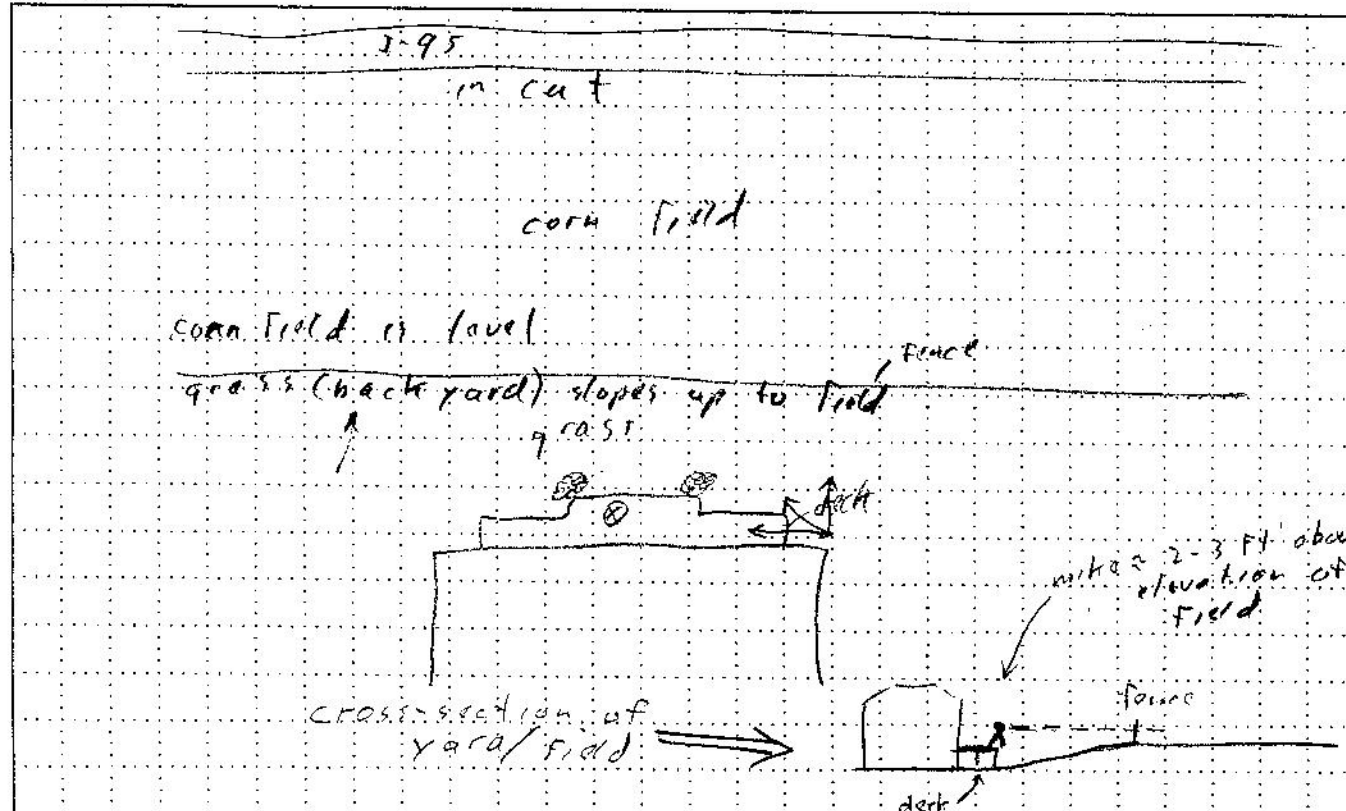 I-95
in cut
corn field
corn field is level
fence
grass (back yard) slopes up to field
grass
deck
mike ≈ 2-3 ft abov
elevation of
field
cross-section of
yard/field
fence
deck